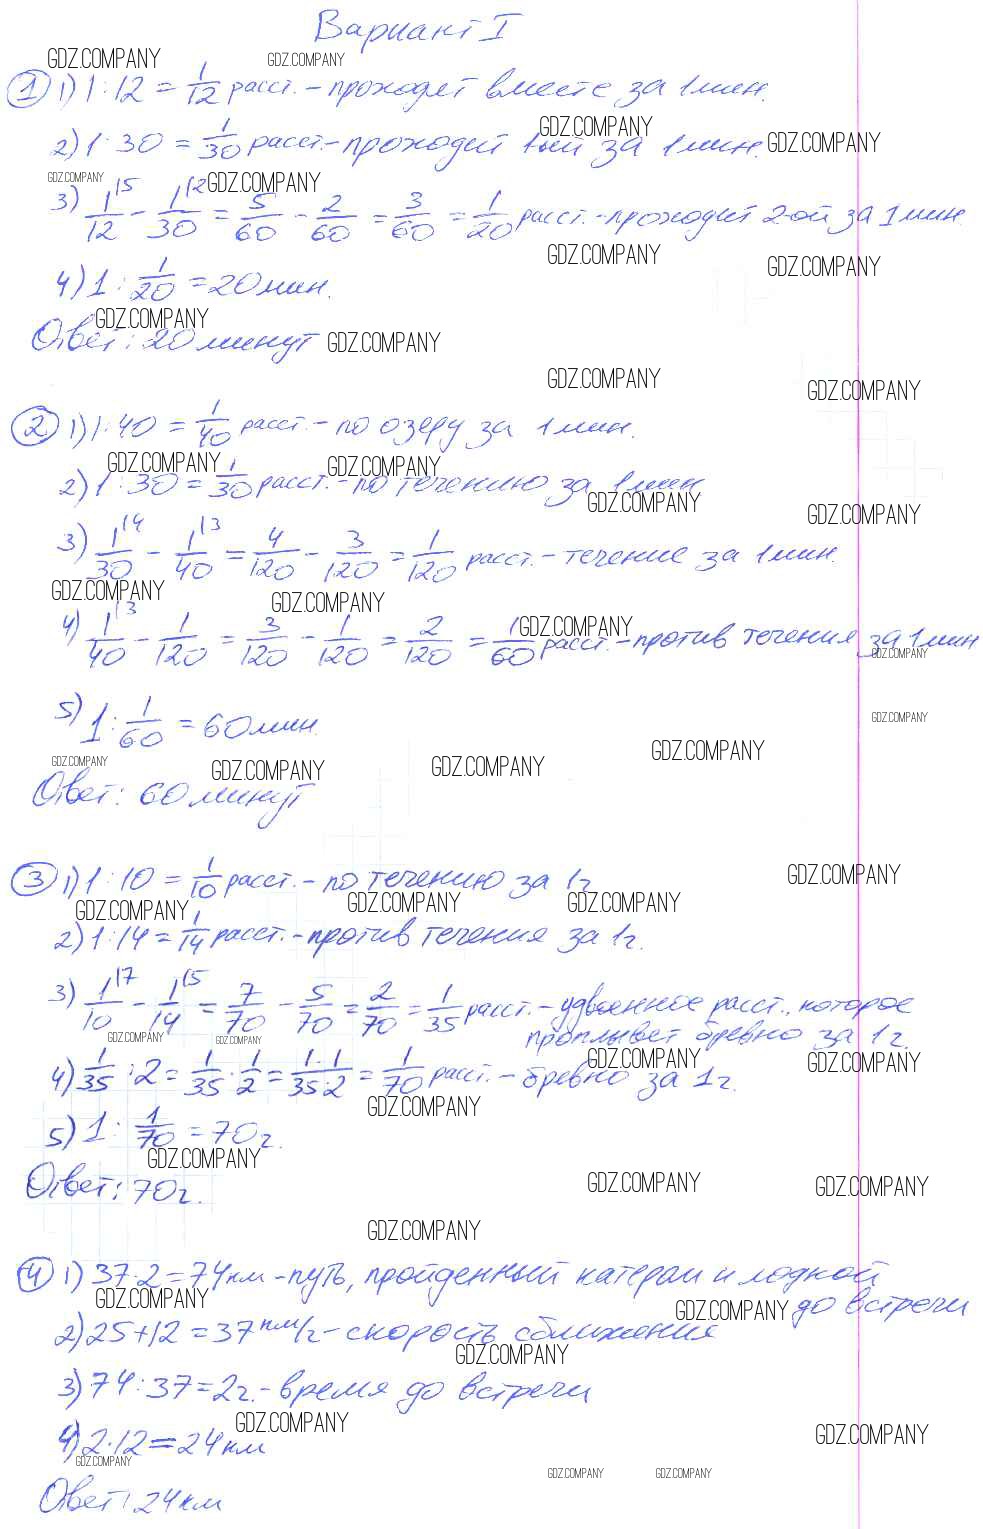 Вариант I
GDZ.COMPANY GDZ.COMPANY
① 1) 1 : 12 = 1/12 расст. - проходят вместе за 1 мин.
GDZ.COMPANY
2) 1 : 30 = 1/30 расст. - проходит 1-ый за 1 мин. GDZ.COMPANY
GDZ.COMPANY GDZ.COMPANY
3) 1/12 |5 - 1/30 |2 = 5/60 - 2/60 = 3/60 = 1/20 расст. - проходит 2-ой за 1 мин.
GDZ.COMPANY GDZ.COMPANY
4) 1 : 1/20 = 20 мин.
GDZ.COMPANY
Ответ: 20 минут GDZ.COMPANY
GDZ.COMPANY GDZ.COMPANY
② 1) 1 : 40 = 1/40 расст. - по озеру за 1 мин.
GDZ.COMPANY GDZ.COMPANY
2) 1 : 30 = 1/30 расст. - по течению за 1 мин
GDZ.COMPANY GDZ.COMPANY
3) 1/30 |4 - 1/40 |3 = 4/120 - 3/120 = 1/120 расст. - течение за 1 мин.
GDZ.COMPANY GDZ.COMPANY GDZ.COMPANY
4) 1/40 |3 - 1/120 = 3/120 - 1/120 = 2/120 = 1/60 расст. - против течения за 1 мин
GDZ.COMPANY
5) 1 : 1/60 = 60 мин. GDZ.COMPANY
GDZ.COMPANY GDZ.COMPANY GDZ.COMPANY GDZ.COMPANY
Ответ: 60 минут
③ 1) 1 : 10 = 1/10 расст. - по течению за 1 ч GDZ.COMPANY
GDZ.COMPANY GDZ.COMPANY GDZ.COMPANY
2) 1 : 14 = 1/14 расст. - против течения за 1 ч.
3) 1/10 |7 - 1/14 |5 = 7/70 - 5/70 = 2/70 = 1/35 расст. - удвоенное расст., которое
проплывет бревно за 1 ч.
GDZ.COMPANY GDZ.COMPANY GDZ.COMPANY GDZ.COMPANY
4) 1/35 : 2 = 1/35 · 1/2 = 1·1/35·2 = 1/70 расст. - бревно за 1 ч.
GDZ.COMPANY
5) 1 : 1/70 = 70 ч.
GDZ.COMPANY
Ответ: 70 ч. GDZ.COMPANY GDZ.COMPANY
GDZ.COMPANY
④ 1) 37·2 = 74 км - путь, пройденный катером и лодкой
до встречи
GDZ.COMPANY GDZ.COMPANY
2) 25 + 12 = 37 км/ч - скорость сближения
GDZ.COMPANY
3) 74 : 37 = 2 ч. - время до встречи
GDZ.COMPANY GDZ.COMPANY
4) 2·12 = 24 км
GDZ.COMPANY GDZ.COMPANY GDZ.COMPANY
Ответ: 24 км